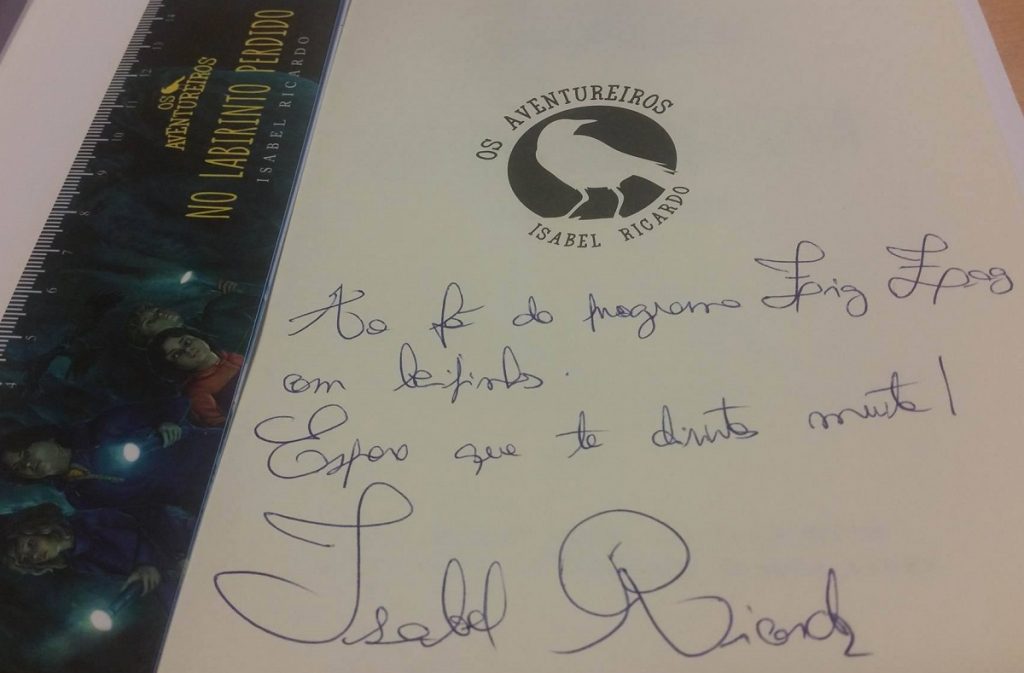 OS
AVENTUREIROS
NO LABIRINTO PERDIDO
ISABEL RICARDO
14
13
12
11
10
9
8
7
6
5
4
OS AVENTUREIROS
ISABEL RICARDO
Ao fã do programa Zig Zag
com beijinhos.
Espero que te divirtas muito!
Isabel Ricardo